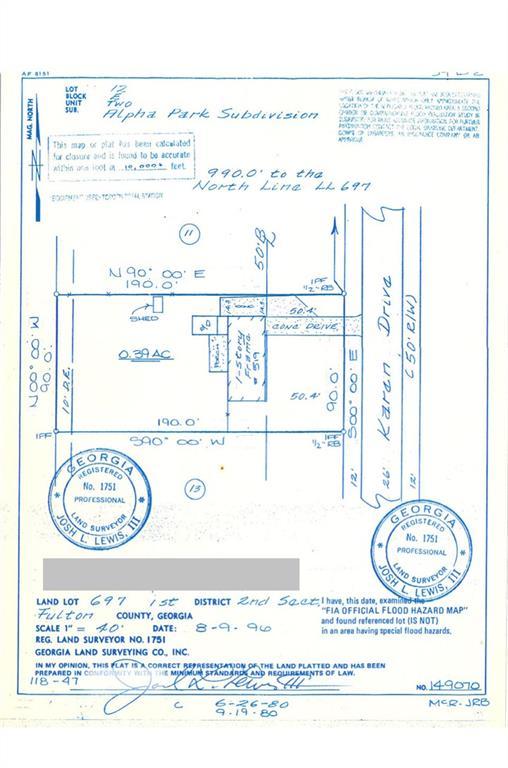 AF 8151
LOT 12
BLOCK E
UNIT Two
SUB. Alpha Park Subdivision
MAG. NORTH
This map or plat has been calculated
for closure and is found to be accurate
within one foot in 10,000+ feet.
990.0' to the
North Line LL 697
11
50' BL
N 90° 00' E
190.0'
IPF
1/2" RB
SHED
CONC DRIVE
0.39 AC
1-Story
Frame
# 519
50.4'
50.4'
N 00° 00' W
90.0'
10' D.E.
90.0'
S 00° 00' E
Karen Drive
(50' R/W)
12'
26'
12'
190.0'
S 90° 00' W
IPF
IPF
1/2" RB
13
GEORGIA
REGISTERED
No. 1751
PROFESSIONAL
LAND SURVEYOR
JOSH L. LEWIS, III
GEORGIA
REGISTERED
No. 1751
PROFESSIONAL
LAND SURVEYOR
JOSH L. LEWIS, III
LAND LOT 697 1st DISTRICT 2nd Sect.
Fulton COUNTY, GEORGIA
SCALE 1" = 40' DATE: 8-9-96
REG. LAND SURVEYOR NO. 1751
GEORGIA LAND SURVEYING CO., INC.
I have, this date, examined the
"FIA OFFICIAL FLOOD HAZARD MAP"
and found referenced lot (IS NOT)
in an area having special flood hazards.
IN MY OPINION, THIS PLAT IS A CORRECT REPRESENTATION OF THE LAND PLATTED AND HAS BEEN
PREPARED IN CONFORMITY WITH THE MINIMUM STANDARDS AND REQUIREMENTS OF LAW.
118-47
NO. 149070
C 6-26-80
9-19-80
McR-JRB